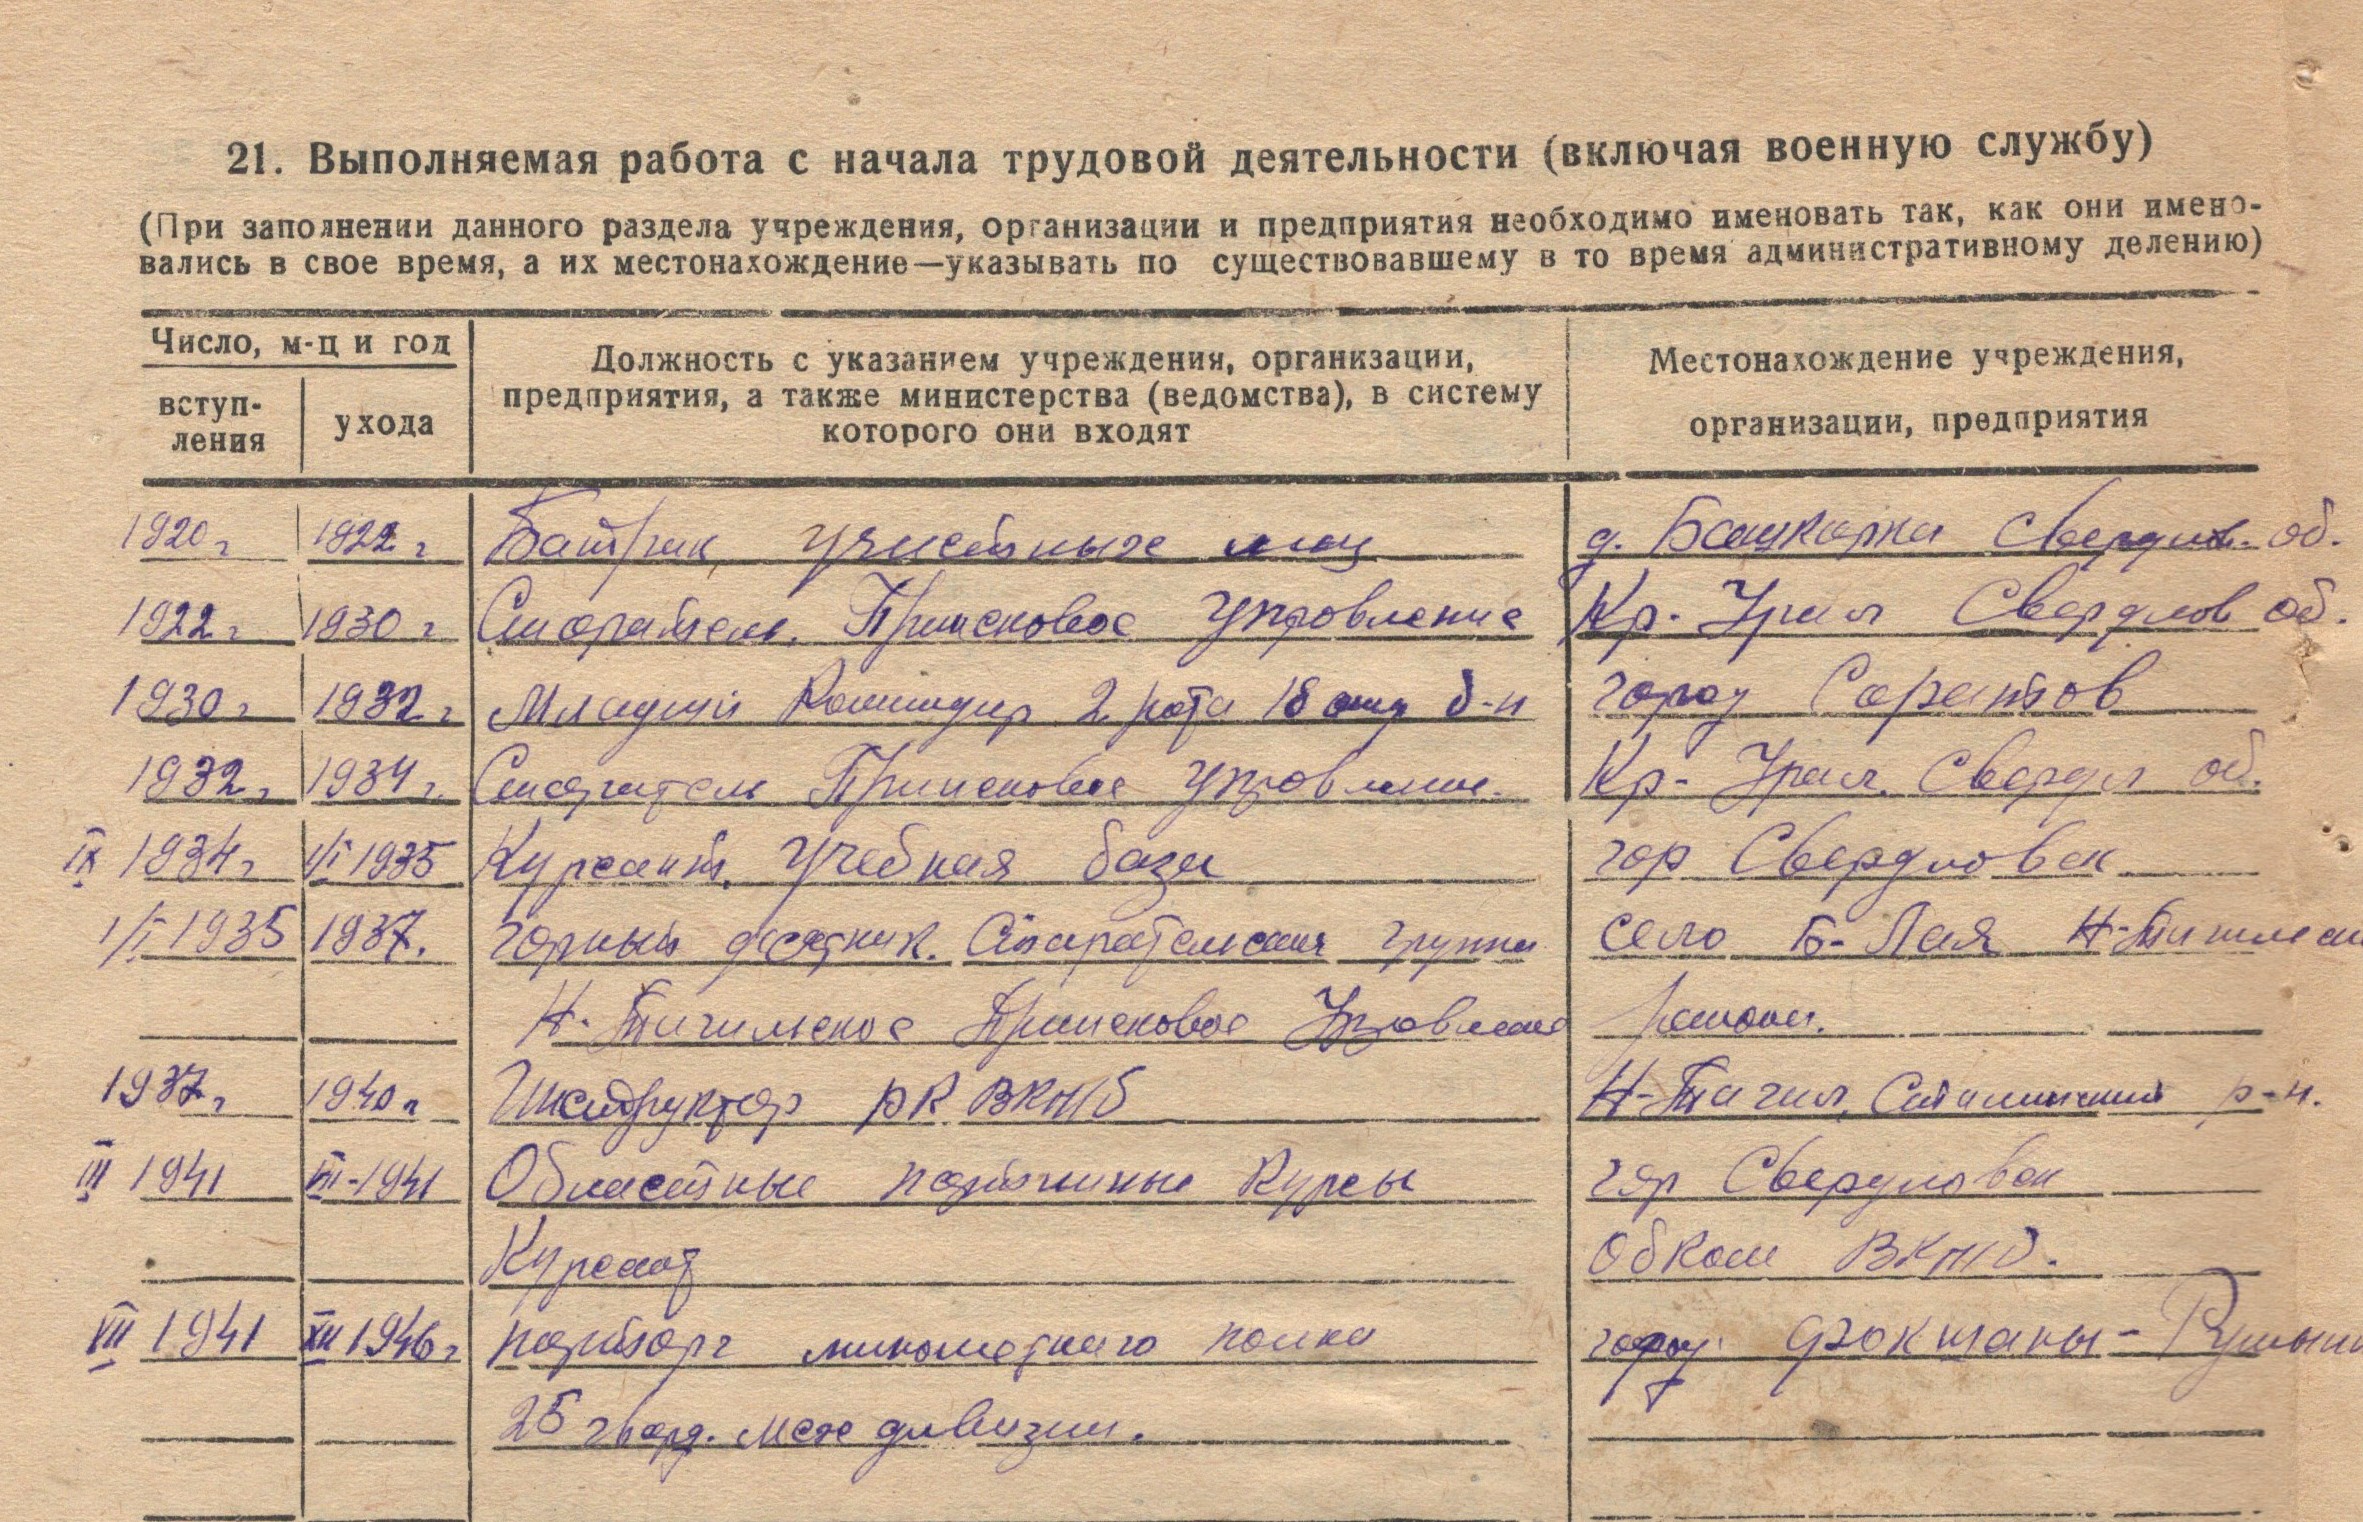 21. Выполняемая работа с начала трудовой деятельности (включая военную службу)
(При заполнении данного раздела учреждения, организации и предприятия необходимо именовать так, как они имено-
вались в свое время, а их местонахождение—указывать по существовавшему в то время административному делению)
Число, м-ц и год
вступ-
ления
ухода
Должность с указанием учреждения, организации,
предприятия, а также министерства (ведомства), в систему
которого они входят
Местонахождение учреждения,
организации, предприятия
1920г 1922г Батрак, у частных лиц д. Башкарка Свердлов. об.
1922г 1930г Старатель. Приисковое Управление Кр-Урал Свердлов об.
1930г 1932г Младший Командир 2 рота 18 отд б-н город Саратов
1932г 1934г Старатель Приисковое управление. Кр-Урал. Свердл об.
IX 1934г VI 1935 Курсант. Учебная база гор Свердловск
VI 1935 1937. Горный десятник. Старательская группа село Б-Лая Н-Тагильск
Н-Тагильское Приисковое Управление района.
1937г 1940г Инструктор РК ВКПб Н-Тагил. Сталинский р-н.
III 1941 VI-1941 Областные партийные курсы гор Свердловск
Курсант Обком ВКПб.
VII 1941 XII 1946г парторг минометного полка город Фокшаны-Румыни
25 гвард. мех дивизии.